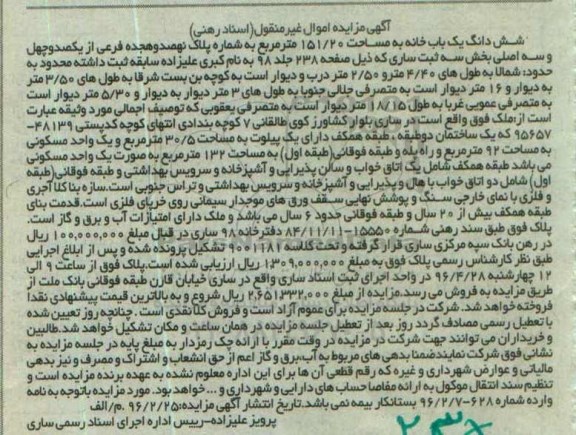 آگهی مزایده اموال غیرمنقول(اسناد رهنی)
شش دانگ یک باب خانه به مساحت ۱۵۱/۲۰ مترمربع به شماره پلاک نهصدوهجده فرعی از یکصدوچهل
و سه اصلی بخش سه ثبت ساری که ذیل صفحه ۲۳۸ جلد ۹۸ به نام کبری علیزاده سابقه ثبت داشته محدود به
حدود: شمالا به طول های ۴/۴۰ مترو ۲/۵۰ متر درب و دیوار است به کوچه بن بست شرقا به طول های ۳/۵۰ متر
به دیوار و ۱۶ متر دیوار است به متصرفی جلالی جنوبا به طول های ۳ متر دیوار به دیوار و ۵/۳۰ متر دیوار است
به متصرفی عمویی غربا به طول ۱۸/۱۵ متر دیوار است به متصرفی یعقوبی که توصیف اجمالی مورد وثیقه عبارت
است از:ملک فوق واقع است در ساری بلوار کشاورز کوی طالقانی ۷ کوچه بندادی انتهای کوچه کدپستی ۴۸۱۳۹-
۹۵۶۵۷ که یک ساختمان دوطبقه ، طبقه همکف دارای یک پیلوت به مساحت ۳۰/۵ مترمربع و یک واحد مسکونی
به مساحت ۹۲ مترمربع و راه پله و طبقه فوقانی(طبقه اول) به مساحت ۱۳۲ مترمربع به صورت یک واحد مسکونی
می باشد طبقه همکف شامل یک اتاق خواب و سالن پذیرایی و آشپزخانه و سرویس بهداشتی و طبقه فوقانی(طبقه
اول) شامل دو اتاق خواب با هال و پذیرایی و آشپزخانه و سرویس بهداشتی و تراس جنوبی است.سازه بنا کلا آجری
و فلزی با نمای خارجی سنگ و پوشش نهایی سقف ورق های موجدار سیمانی روی خرپای فلزی است.قدمت بنای
طبقه همکف بیش از ۲۰ سال و طبقه فوقانی حدود ۶ سال می باشد و ملک دارای امتیازات آب و برق و گاز است.
پلاک فوق طبق سند رهنی شماره ۱۵۵۵۰-۸۴/۱۱/۱۱ دفترخانه ۹۸ ساری در قبال مبلغ ۱۰۰,۰۰۰,۰۰۰ ریال
در رهن بانک سپه مرکزی ساری قرار گرفته و تحت کلاسه ۹۰۰۱۱۸۱ تشکیل پرونده شده و پس از ابلاغ اجرایی
طبق نظر کارشناس رسمی پلاک فوق به مبلغ ۱,۳۰۹,۰۰۰,۰۰۰ ریال ارزیابی شده است.پلاک فوق از ساعت ۹ الی
۱۲ چهارشنبه ۹۶/۴/۲۸ در واحد اجرای ثبت اسناد ساری واقع در ساری خیابان قارن طبقه فوقانی بانک ملت از
طریق مزایده به فروش می رسد.مزایده از مبلغ ۲,۶۵۱,۳۳۲,۰۰۰ ریال شروع و به بالاترین قیمت پیشنهادی نقدا
فروخته خواهد شد. شرکت در جلسه مزایده برای عموم آزاد است و فروش کلا نقدی است . چنانچه روز تعیین شده
با تعطیل رسمی مصادف گردد روز بعد از تعطیل جلسه مزایده در همان ساعت و مکان تشکیل خواهد شد.طالبین
و خریداران می توانند جهت شرکت در مزایده در وقت مقرر با ارائه چک رمزدار به مبلغ پایه در جلسه مزایده به
نشانی فوق شرکت نمایندضمنا بدهی های مربوط به آب،برق و گاز اعم از حق انشعاب و اشتراک و مصرف و نیز بدهی
مالیاتی و عوارض شهرداری و غیره که رقم قطعی آن ها برای این اداره معلوم نشده به عهده برنده مزایده است و
تنظیم سند انتقال موکول به ارائه مفاصا حساب های دارایی و شهرداری و ...خواهد بود. مورد مزایده باتوجه به نامه
وارده شماره ۶۲۸-۹۶/۲/۷ بستانکار بیمه نمی باشد.تاریخ انتشار آگهی مزایده:۹۶/۲/۲۵ .م/الف
پرویز علیزاده-رییس اداره اجرای اسناد رسمی ساری